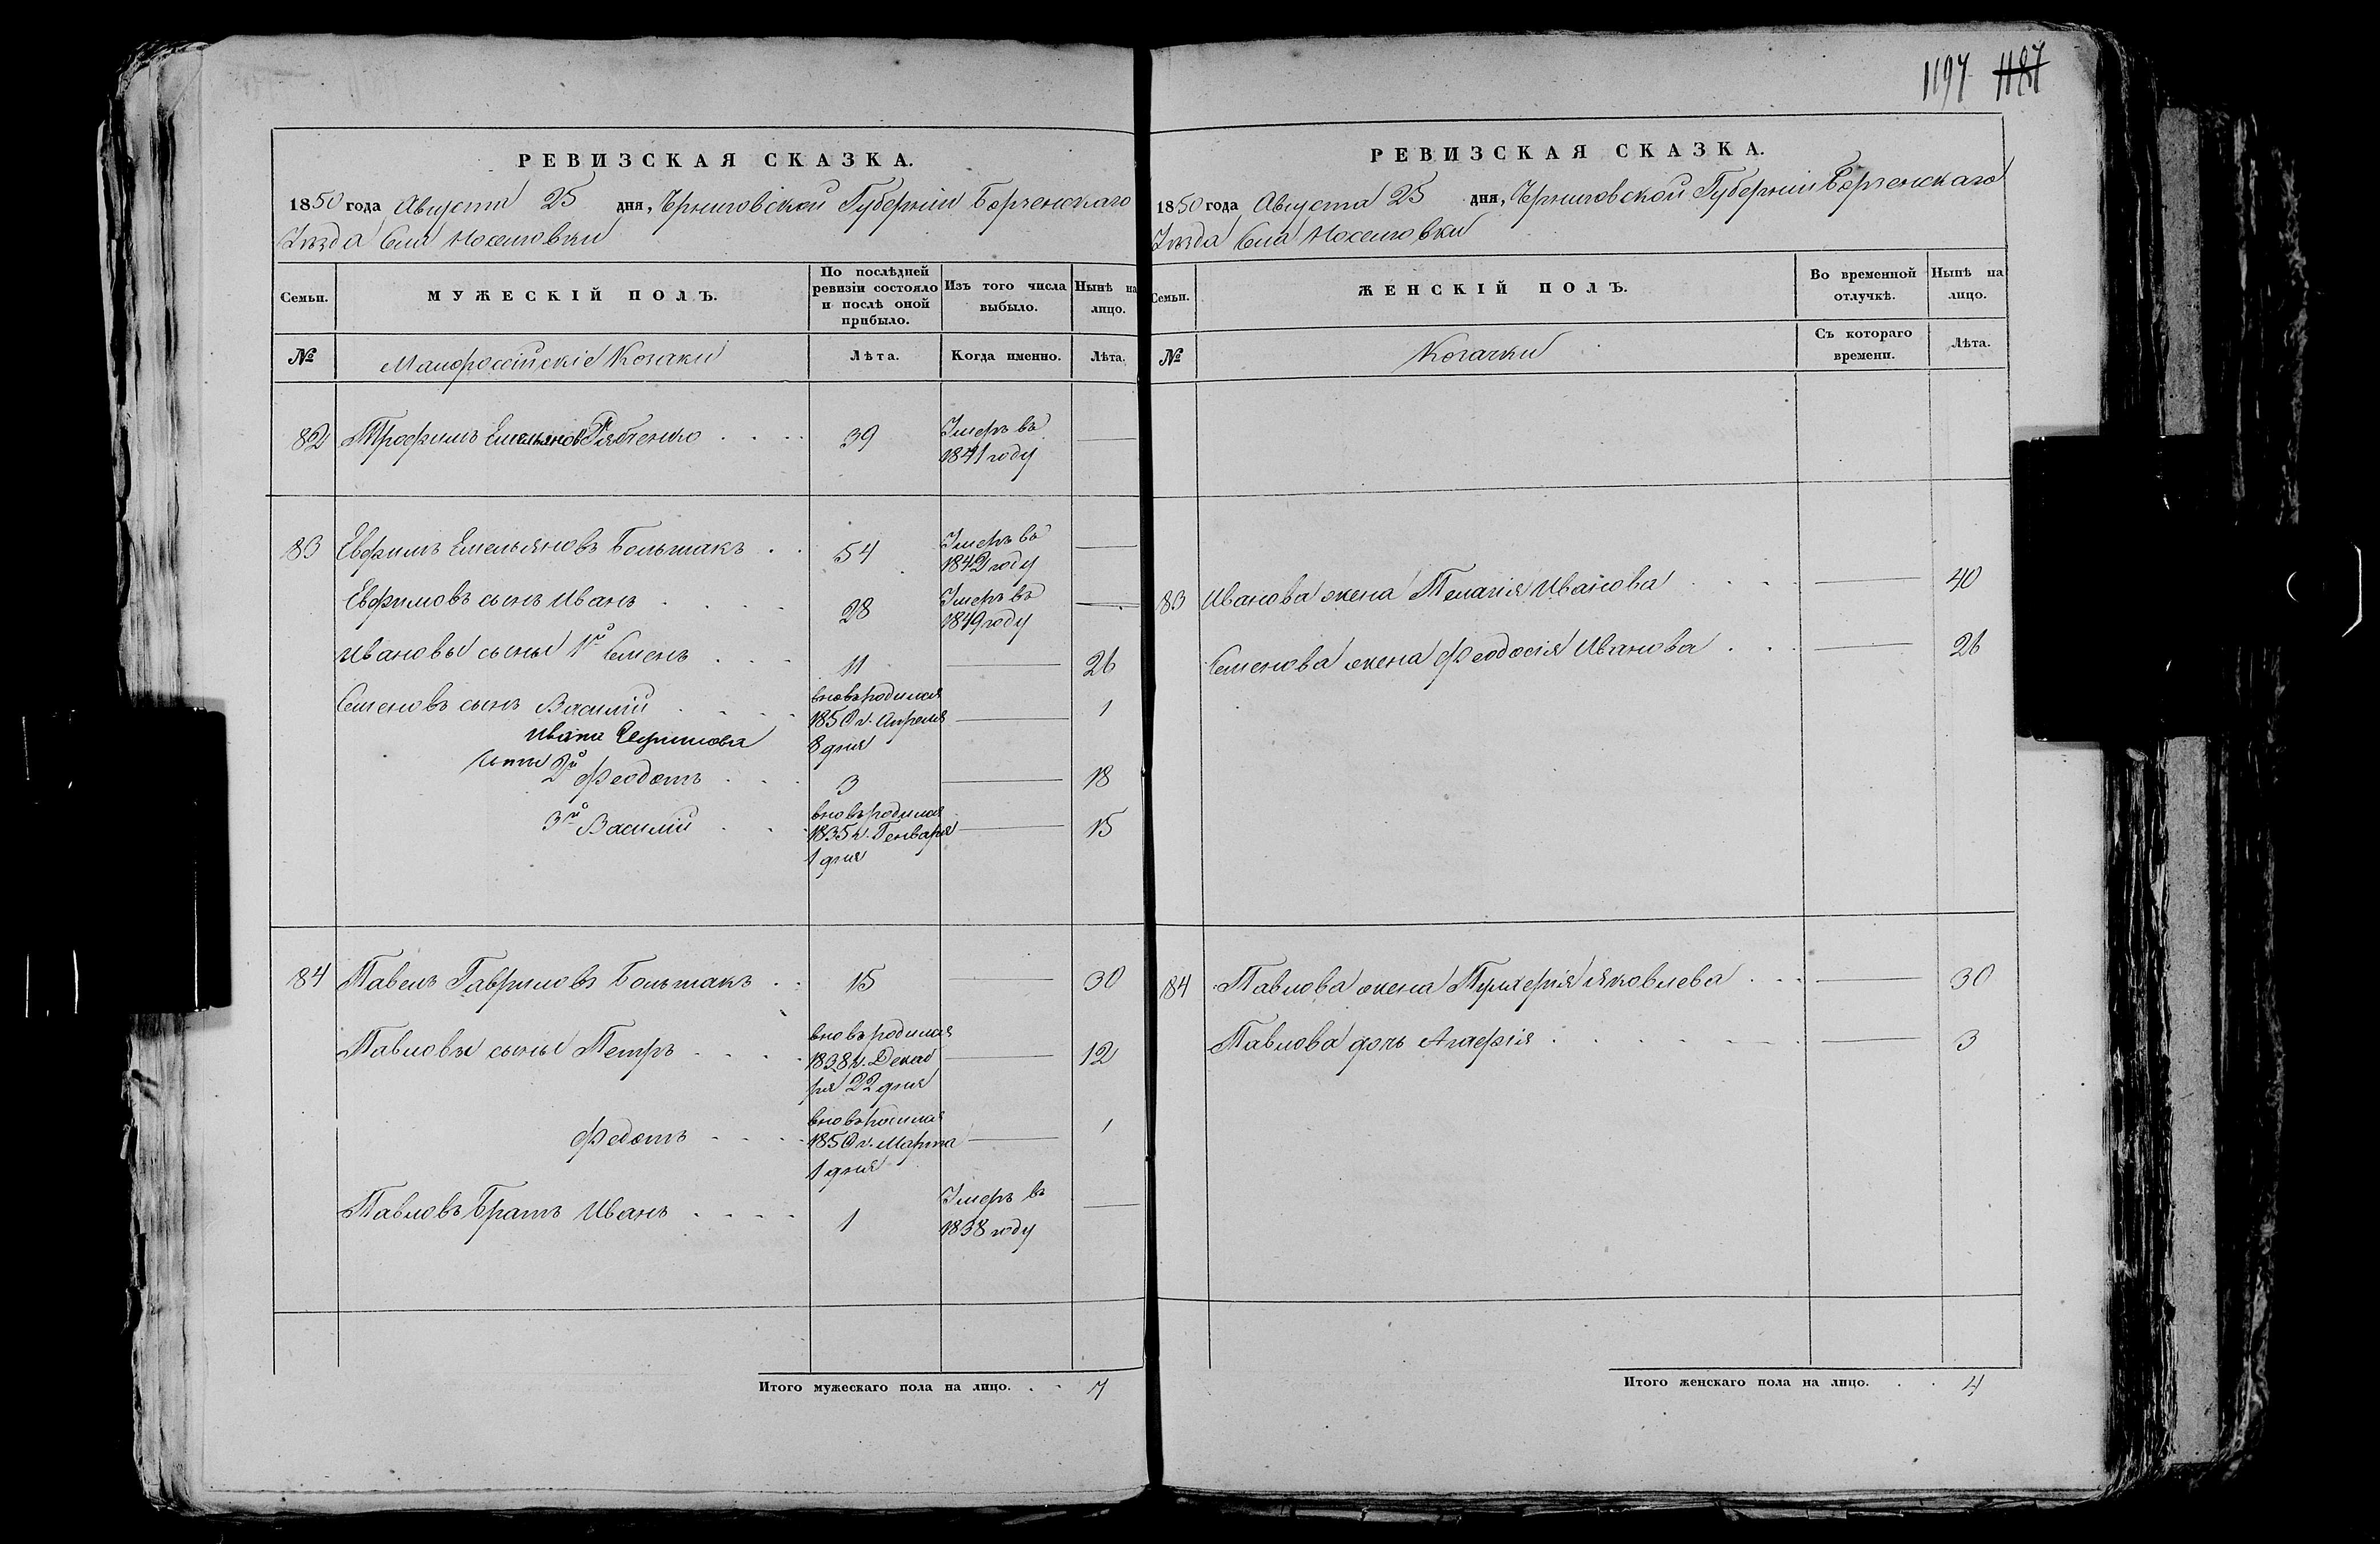 1197 1187
РЕВИЗСКАЯ СКАЗКА.
1850 года Августа 25 дня, Черниговской Губерніи Борзенскаго
Уѣзда Села
МУЖЕСКІЙ ПОЛЪ.
Семьи.
По послѣдней
ревизіи состояло
и послѣ оной
прибыло.
Изъ того числа
выбыло.
Нынѣ на
лицо.
№
Малороссійскіе Козаки
Лѣта.
Когда именно.
Лѣта.
82 Трофимъ Емельяновъ Рябченко 39 Умеръ въ
1841 году
83 Евфимъ Емельяновъ Больмакъ 54 Умеръ въ
1842 году
Евфимовъ сынъ Иванъ 28 Умеръ въ
1849 году
Ивановы сыны 1й Семенъ 11 26
Семеновъ сынъ Василій вновьродился
1850 г. Апреля
8 дня 1
Ивана Евфимова
2й Феодотъ 3 18
3й Василій вновьродился
1835 г. Генваря
1 дня 15
84 Павелъ Гавриловъ Больмакъ 15 30
Павловы сыны Петръ вновьродился
1838 г. Декаб
ря 22 дня 12
Федотъ вновьродился
1850 г. Марта
1 дня 1
Павловъ Братъ Иванъ 1 Умеръ въ
1838 году
Итого мужескаго пола на лицо. 7
РЕВИЗСКАЯ СКАЗКА.
1850 года Августа 25 дня, Черниговской Губерніи Борзенскаго
Уѣзда Села
Семьи.
ЖЕНСКІЙ ПОЛЪ.
Во временной
отлучкѣ.
Нынѣ на
лицо.
№
Козачки
Съ котораго
времени.
Лѣта.
83 Иванова жена Пелагія Иванова 40
Семенова жена Феодосія Иванова 26
84 Павлова жена Пулхерія Яковлева 30
Павлова дочь Агафія 3
Итого женскаго пола на лицо. 4